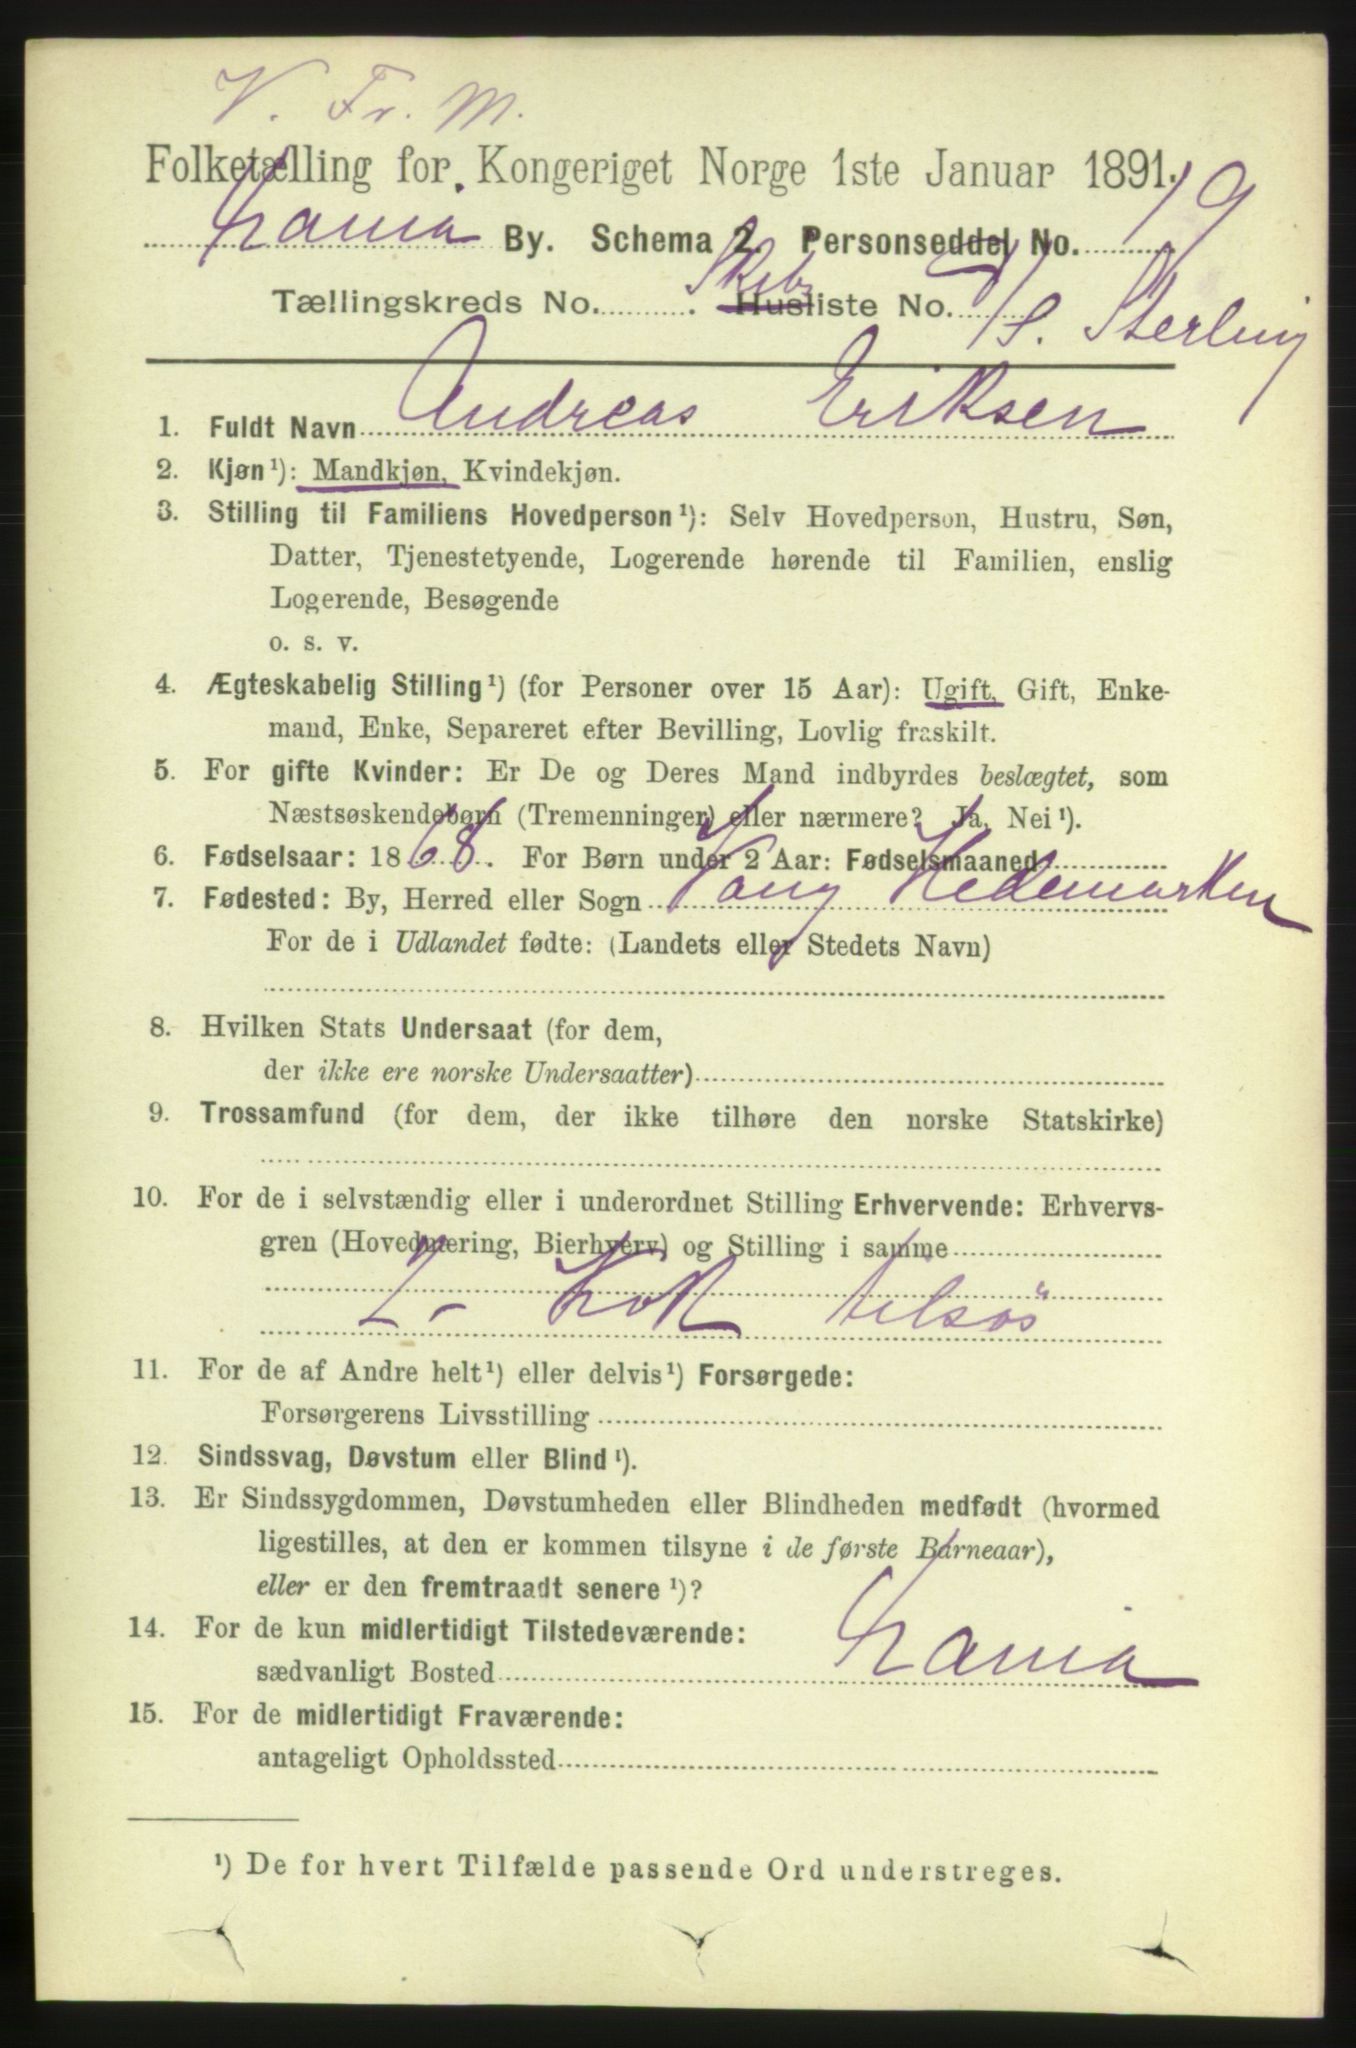 V. Fr. M.
Folketælling for Kongeriget Norge 1ste Januar 1891.
Xania By. Schema 2. Personseddel No. 19
Tællingskreds No. . Skibs Husliste No. S. Sterling
1. Fuldt Navn Andreas Eriksen
2. Kjøn¹): Mandkjøn, Kvindekjøn.
3. Stilling til Familiens Hovedperson¹): Selv Hovedperson, Hustru, Søn,
Datter, Tjenestetyende, Logerende hørende til Familien, enslig
Logerende, Besøgende
o. s. v.
4. Ægteskabelig Stilling¹) (for Personer over 15 Aar): Ugift, Gift, Enke-
mand, Enke, Separeret efter Bevilling, Lovlig fraskilt.
5. For gifte Kvinder: Er De og Deres Mand indbyrdes beslægtet, som
Næstsøskendebørn (Tremenninger) eller nærmere? Ja, Nei¹).
6. Fødselsaar: 1868. For Børn under 2 Aar: Fødselsmaaned
7. Fødested: By, Herred eller Sogn Vang Hedemarken
For de i Udlandet fødte: (Landets eller Stedets Navn)
8. Hvilken Stats Undersaat (for dem,
der ikke ere norske Undersaatter)
9. Trossamfund (for dem, der ikke tilhøre den norske Statskirke)
10. For de i selvstændig eller i underordnet Stilling Erhvervende: Erhvervs-
gren (Hovednæring, Bierhverv) og Stilling i samme
2- Kok tilsøs
11. For de af Andre helt¹) eller delvis¹) Forsørgede:
Forsørgerens Livsstilling
12. Sindssvag, Døvstum eller Blind¹).
13. Er Sindssygdommen, Døvstumheden eller Blindheden medfødt (hvormed
ligestilles, at den er kommen tilsyne i de første Barneaar),
eller er den fremtraadt senere¹)?
14. For de kun midlertidigt Tilstedeværende:
sædvanligt Bosted Xania
15. For de midlertidigt Fraværende:
antageligt Opholdssted
¹) De for hvert Tilfælde passende Ord understreges.